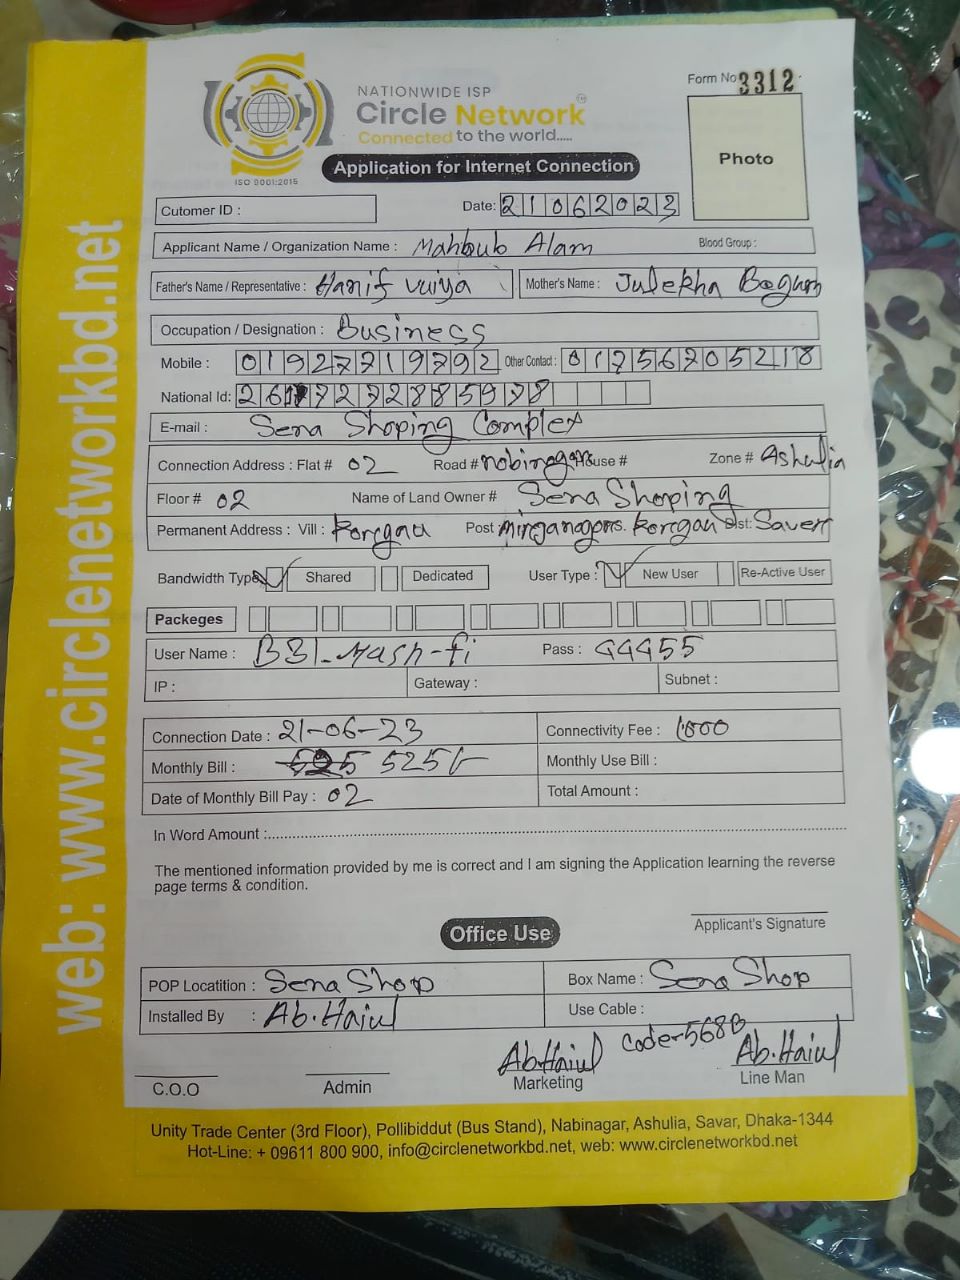 NATIONWIDE ISP
Circle Network
Connected to the world.....
ISO 9001:2015
Form No 3312
Photo
Application for Internet Connection
Cutomer ID :
Date: 21062023
Applicant Name / Organization Name : Mahbub Alam Blood Group :
Father's Name / Representative : Hanif Vuiya Mother's Name : Julekha Begum
Occupation / Designation : Business
Mobile : 01927719792 Other Contact : 01756205218
National Id:
E-mail : Sena Shoping Complex
Connection Address : Flat # 02 Road # nobinagar House # Zone # Ashulia
Floor # 02 Name of Land Owner # Sena Shoping
Permanent Address : Vill : Korgau Post Korgau Dist: Saver
Bandwidth Type Shared Dedicated User Type : New User Re-Active User
Packeges
User Name : Pass : 44455
IP : Gateway : Subnet :
Connection Date : 21-06-23 Connectivity Fee : 1000
Monthly Bill : 525/- Monthly Use Bill :
Date of Monthly Bill Pay : 02 Total Amount :
In Word Amount :
The mentioned information provided by me is correct and I am signing the Application learning the reverse
page terms & condition.
Applicant's Signature
Office Use
POP Locatition : Sena Shop Box Name : Sena Shop
Installed By : Ab.Haiul Use Cable :
Ab.Haiul Ab.Haiul
C.O.O Admin Marketing Line Man
Unity Trade Center (3rd Floor), Pollibiddut (Bus Stand), Nabinagar, Ashulia, Savar, Dhaka-1344
Hot-Line: + 09611 800 900, info@circlenetworkbd.net, web: www.circlenetworkbd.net
web: www.circlenetworkbd.net